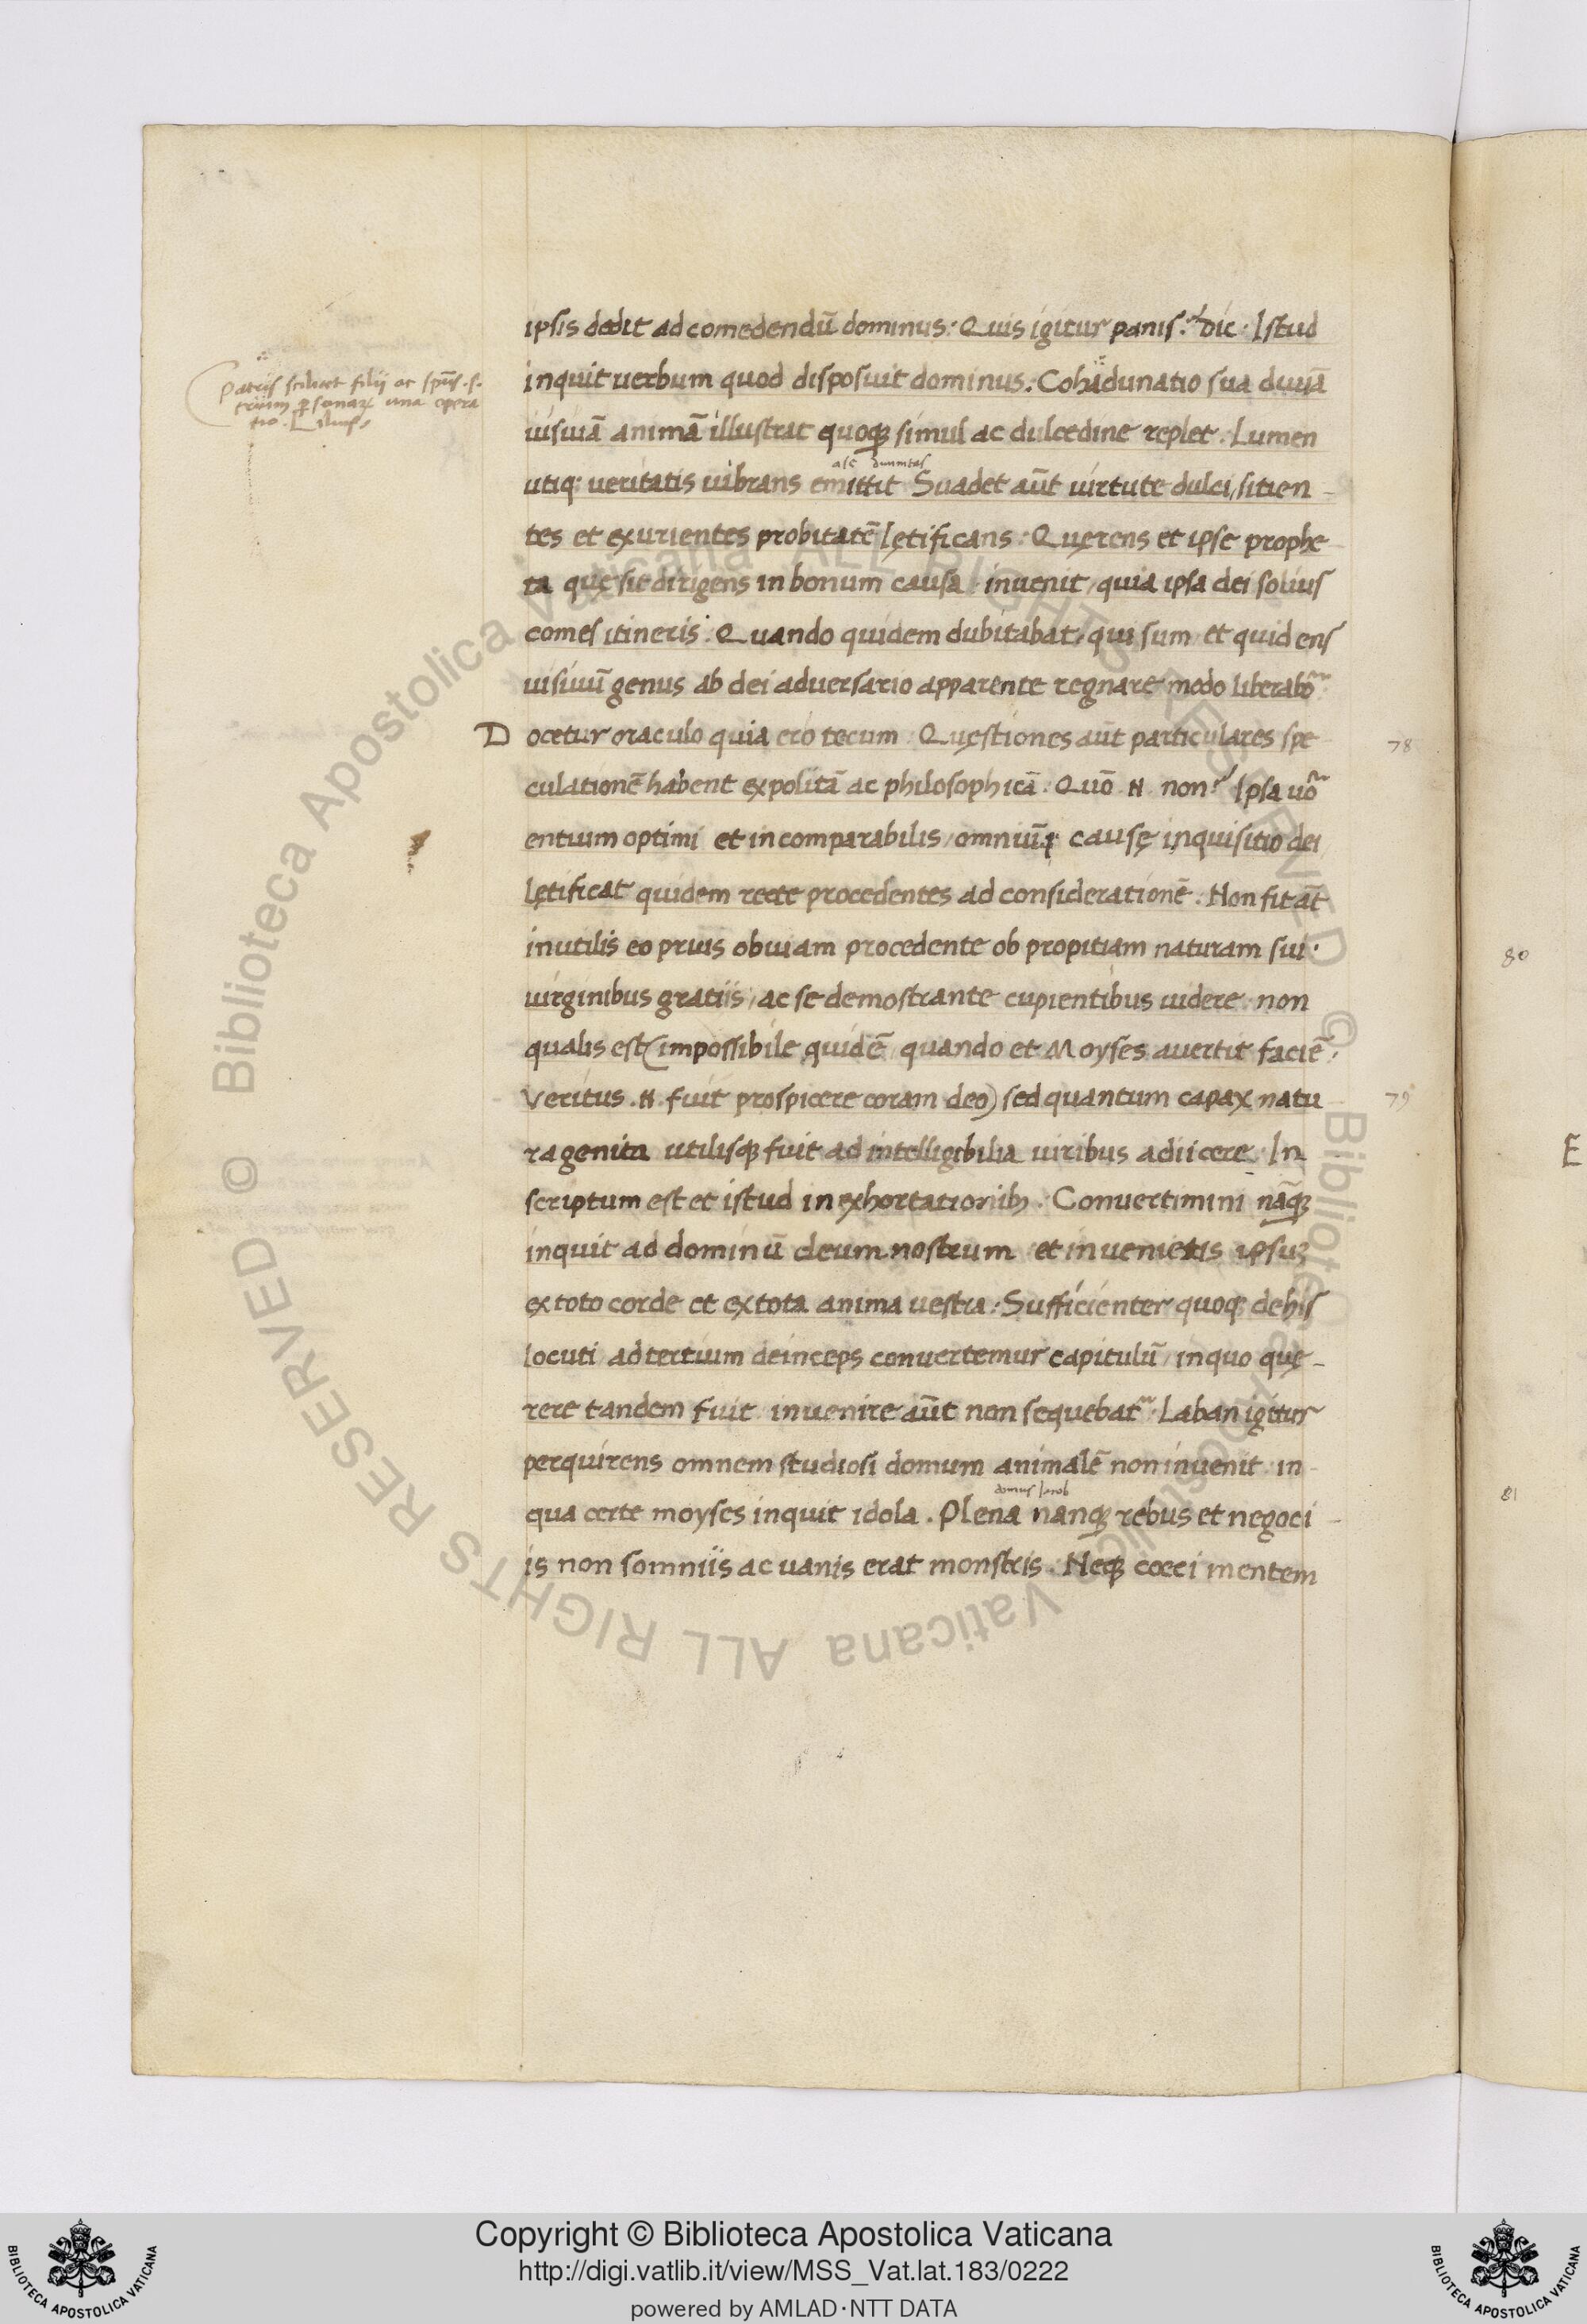 ipsis dedit ad comedendū dominus: Quis igitur panis? Dic: Istud
inquit uerbum quod disposuit dominus: Cohadunatio sua diuiā
uisiuā animā illustrat quoqꝫ simul ac dulcedine replet. Lumen
utiqꝫ ueritatis uibrans emittit Suadet aūt uirtute dulci, sitien-
tes et exurientes probitatē lętificans: Quęrens et ipse prophe
ta quę sit dirigens in bonum causa · inuenit, quia ipsa dei solius
comes itineris: Quando quidem dubitabat, qui sum et quid ens
uisiuū genus ab dei aduersario apparente regnare modo liberabōr
Docetur oraculo quia ero tecum · Quęstiones aūt particulares spe
culationē habent expolitā ac philosophicā. Quō .N. non? Ipsa uō
entium optimi et incomparabilis, omniūqꝫ causę inquisitio dei
lętificat quidem recte procedentes ad considerationē. Non fit āt
inutilis eo prius obuiam procedente ob propitiam naturam sui·
uirginibus gratiis, ac se demostrante cupientibus uidere · non
qualis est (impossibile quidē, quando et Moyses auertit faciē:
Veritus .N. fuit prospicere coram deo) sed quantum capax natu
ra genita utilisqꝫ fuit ad intelligibilia uiribus adiicere. In
scriptum est et istud in exhortationibꝫ. Conuertimini nāqꝫ
inquit ad dominū deum nostrum et inuenietis ipsuꝫ
ex toto corde et ex tota anima uestra: Sufficienter quoqꝫ de his
locuti, ad tertium deinceps conuertemur capitulū, in quo quę-
rere tandem fuit inuenire aūt non sequebatr. Laban igitur
perquirens omnem studiosi domum animalē non inuenit in
domus Iacob
qua certe moyses inquit idola. Plena nanqꝫ rebus et negoci-
is non somniis ac uanis erat monstris. Neqꝫ coeci mentem
Patris scilicet filii ac spūs .s.
trium ꝑsonaꝝ una opera
tio.
78
79
80
81
E
© Biblioteca Apostolica Vaticana ALL RIGHTS RESERVED © Biblioteca Apostolica Vaticana ALL RIGHTS RESERVED
Copyright © Biblioteca Apostolica Vaticana
http://digi.vatlib.it/view/MSS_Vat.lat.183/0222
powered by AMLAD·NTT DATA
BIBLIOTECA APOSTOLICA VATICANA
BIBLIOTECA APOSTOLICA VATICANA